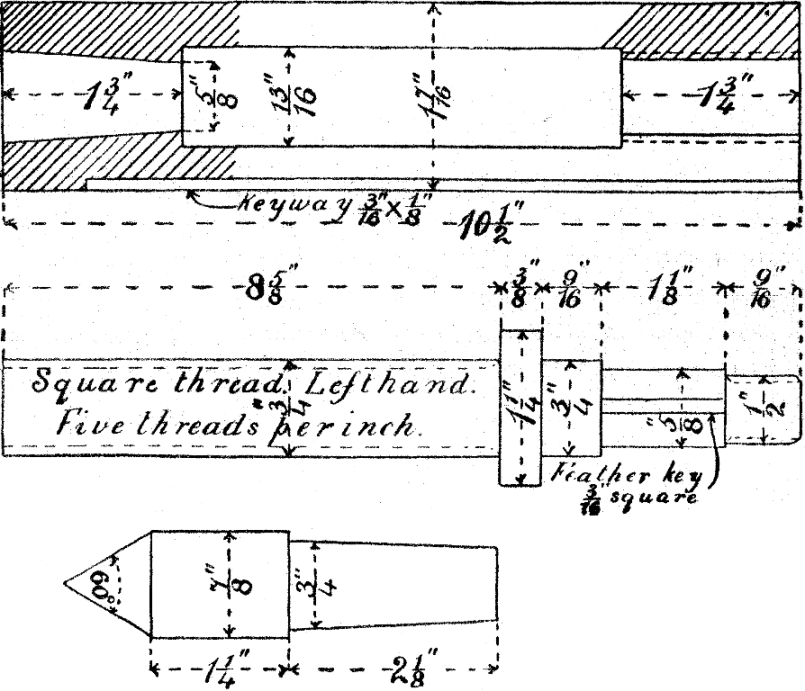 1 3/4" 5/8" 13/16" 1 7/16" 1 3/4"
Keyway 3/16" × 1/8"
10 1/2"
8 5/8" 3/8" 9/16" 1 1/8" 9/16"
Square thread. Left hand.
Five threads per inch.
3/4" 1 1/4" 3/4" 5/8" 1/2"
Feather key
3/16" square
60° 7/8" 3/4"
1 1/4" 2 1/8"